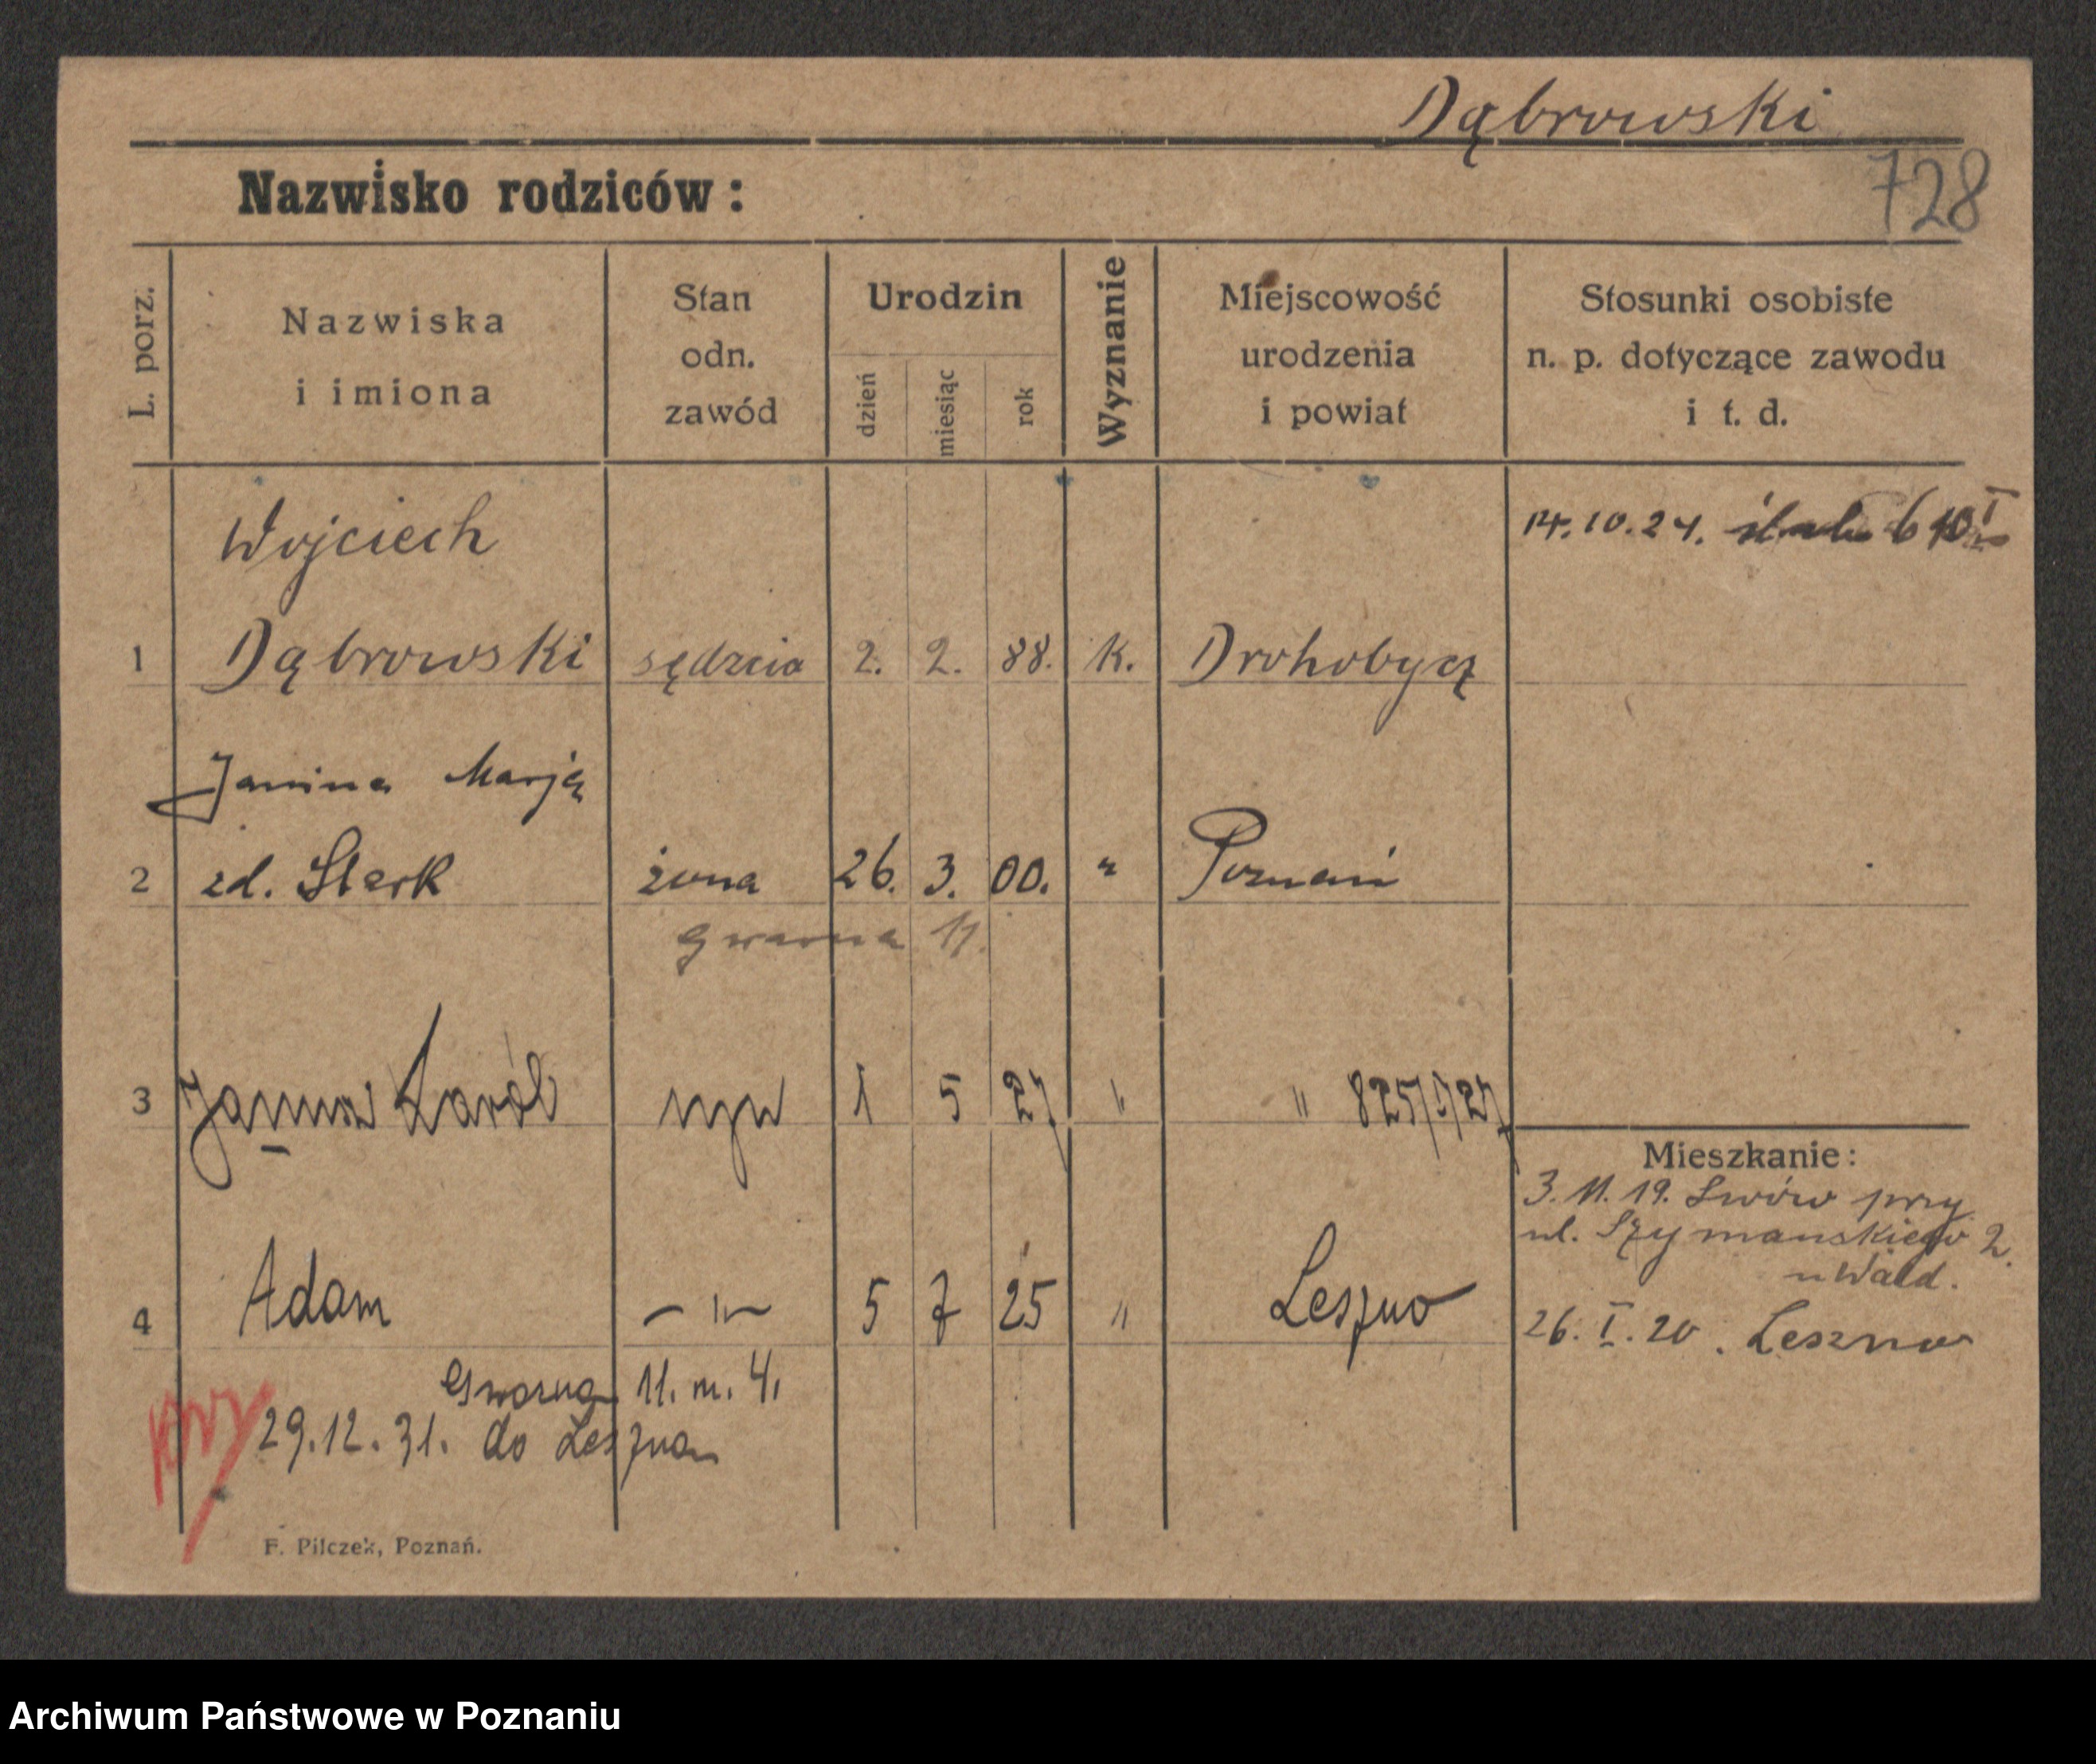 Dąbrowski
Nazwisko rodziców:
728
L. porz.
Nazwiska
i imiona
Stan
odn.
zawód
Urodzin
dzień
miesiąc
rok
Wyznanie
Miejscowość
urodzenia
i powiat
Stosunki osobiste
n. p. dotyczące zawodu
i t. d.
Wojciech
14.10.24.
1 Dąbrowski sędzia 2. 2. 88. k. Drohobycz
Janina Marja
2 zd. Sterk żona 26. 3. 00. " Poznań
Gwarna 11.
3 Karól syn 1 5 27 " " 825/5/27
Mieszkanie:
3. 11. 19. Lwów przy
ul. Szymanskiego 2.
u Wald.
4 Adam — " — 5 7 25 " Leszno
26. I. 20. Leszno
Gwarna 11. m. 4.
29.12.31. do Leszna
F. Pilczek, Poznań.
Archiwum Państwowe w Poznaniu